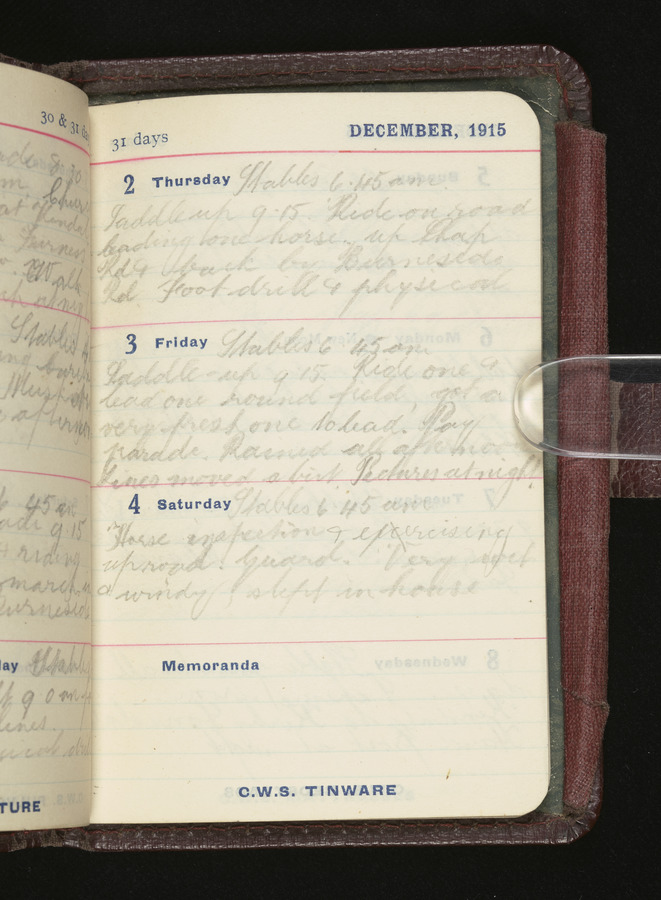 30 & 31 da
31 days
DECEMBER, 1915
2 Thursday Stables 6.45 am.
Saddle up 9.15. Ride on road
leading one horse up Shap
Rd & back by Burneside
Rd Foot drill & physical
3 Friday Stables 6 45 am
Saddle-up 9 15. Ride one &
lead one round field, got a
very fresh one to lead. Pay
parade. Rained all afternoon
Lines moved a bit. Pictures at night
4 Saturday Stables 6.45 am
Horse inspection & exercising
up road. Guard. Very wet
& windy slept in house
Memoranda
C.W.S. TINWARE
6 45 am
9.15
riding
ay
lines.
TURE